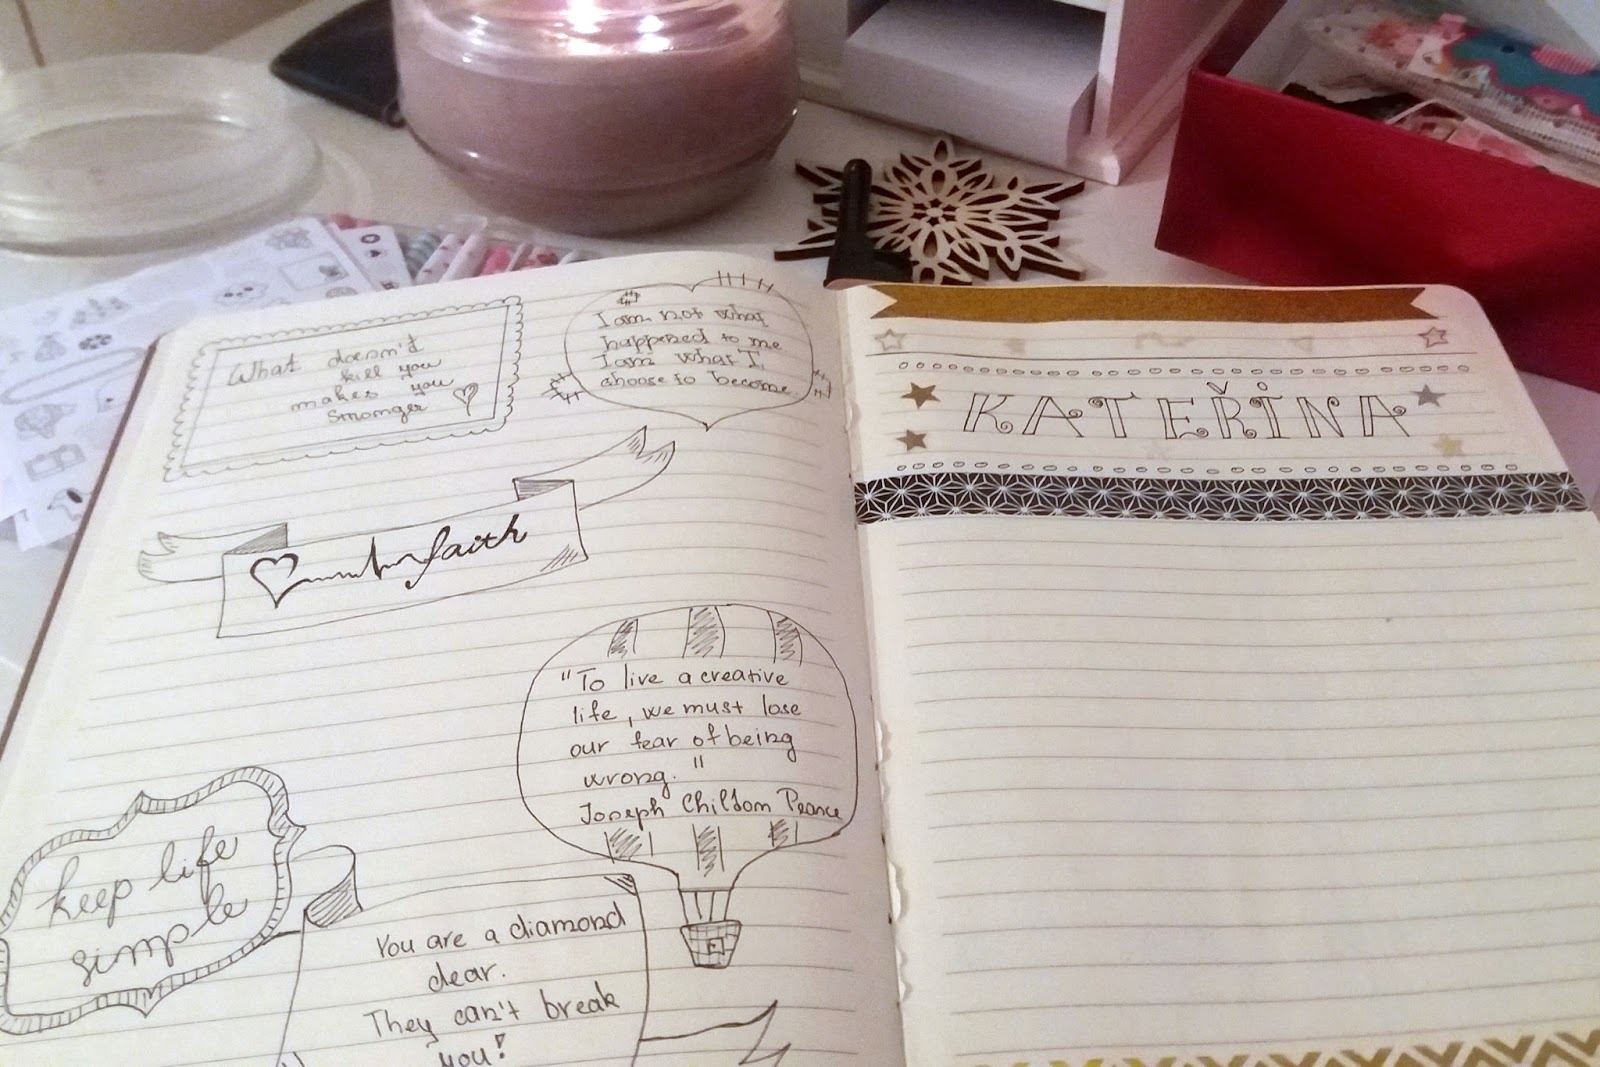 What doesn't
kill you
makes you
stronger
I am not what
happened to me
I am what I
choose to become
faith
"To live a creative
life, we must lose
our fear of being
wrong."
Joseph Childon Pearce
keep life
simple
You are a diamond
dear.
They can't break
you!
KATEŘINA